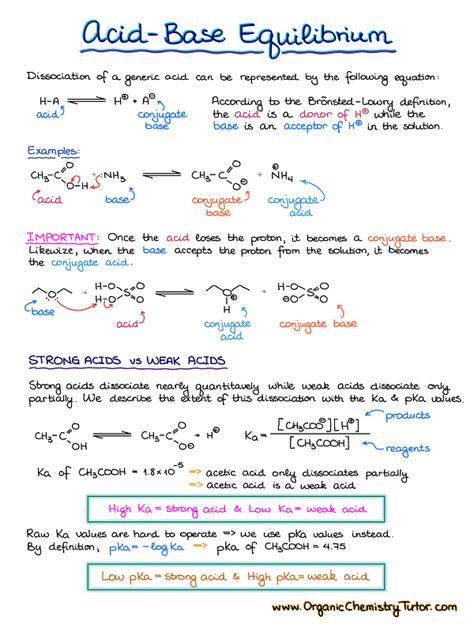 Acid-Base Equilibrium
Dissociation of a generic acid can be represented by the following equation:
H-A ⇌ H⊕ + A⊖
acid
conjugate base
According to the Brönsted-Lowry definition,
the acid is a donor of H⊕ while the
base is an acceptor of H⊕ in the solution.
Examples:
CH₃-C O O-H + :NH₃ ⇌ CH₃-C O O⊖ + ⊕NH₄
acid
base
conjugate base
conjugate acid
IMPORTANT: Once the acid loses the proton, it becomes a conjugate base.
Likewize, when the base accepts the proton from the solution, it becomes
the conjugate acid.
O + H-O H-O S O O ⇌ O⊕ H + H-O ⊖O S O O
base
acid
conjugate acid
conjugate base
STRONG ACIDS vs WEAK ACIDS
Strong acids dissociate nearly quantitavely while weak acids dissociate only
partially. We describe the extent of this dissociation with the Ka & pKa values.
CH₃-C O OH ⇌ CH₃-C O O⊖ + H⊕
Ka = [CH₃COO⊖][H⊕] / [CH₃COOH]
products
reagents
Ka of CH₃COOH = 1.8×10⁻⁵ => acetic acid only dissociates partially
=> acetic acid is a weak acid
High Ka = strong acid & Low Ka = weak acid
Raw Ka values are hard to operate => we use pKa values instead.
By definition, pKa = -logKa => pKa of CH₃COOH = 4.75
Low pKa = strong acid & High pKa = weak acid
www.OrganicChemistryTutor.com